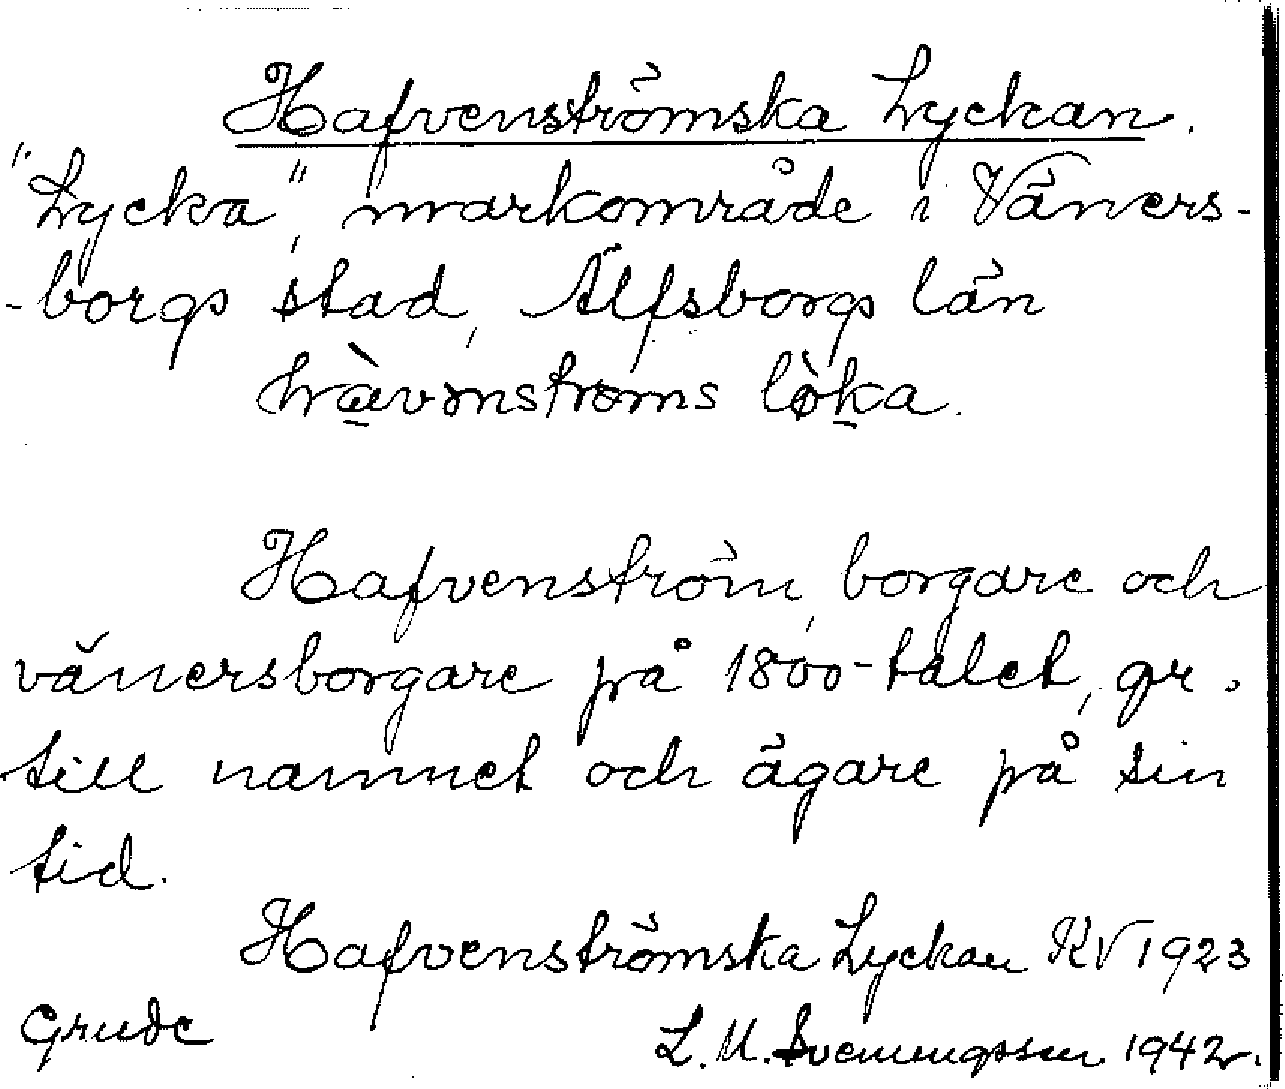 Hafvenströmska Lyckan.
"Lycka", markområde i Väners-
-borgs stad, Älfsborgs län
hràvənstroms lòka.
Hafvenström, borgare och
vänersborgare på 1800-talet, gr.
till namnet och ägare på sin
tid.
Hafvenströmska Lyckan KV 1923
Grude
L. M. Svenungsson 1942.